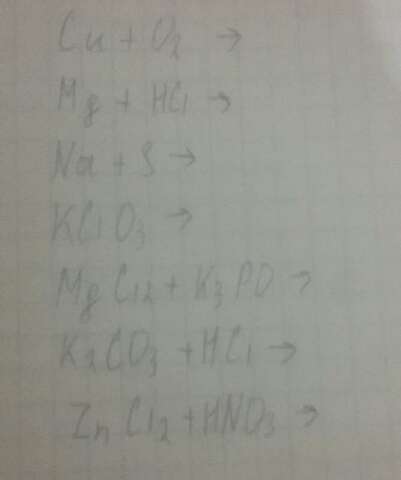 Cu + O2 →
Mg + HCl →
Na + S →
KClO3 →
MgCl2 + K3PO →
K2CO3 + HCl →
ZnCl2 + HNO3 →